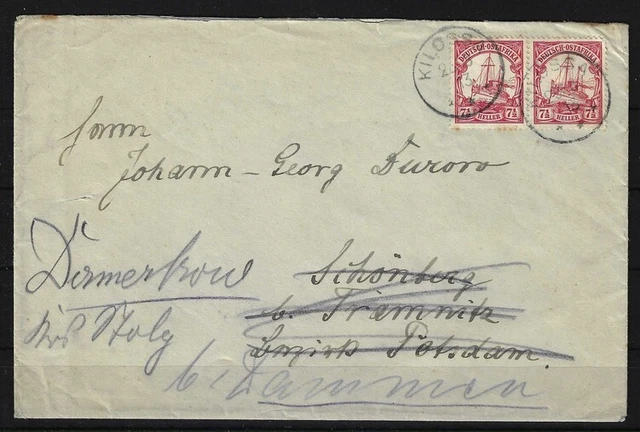 KILOSSA
DEUTSCH-OSTAFRIKA DEUTSCH-OSTAFRIKA
7½ HELLER 7½ 7½ HELLER 7½
Herrn
Johann-Georg Furoro
Schönberg
b. Tramnitz
Bezirk Potsdam.
Dermerkow
Krs Stolp
b. Dammen